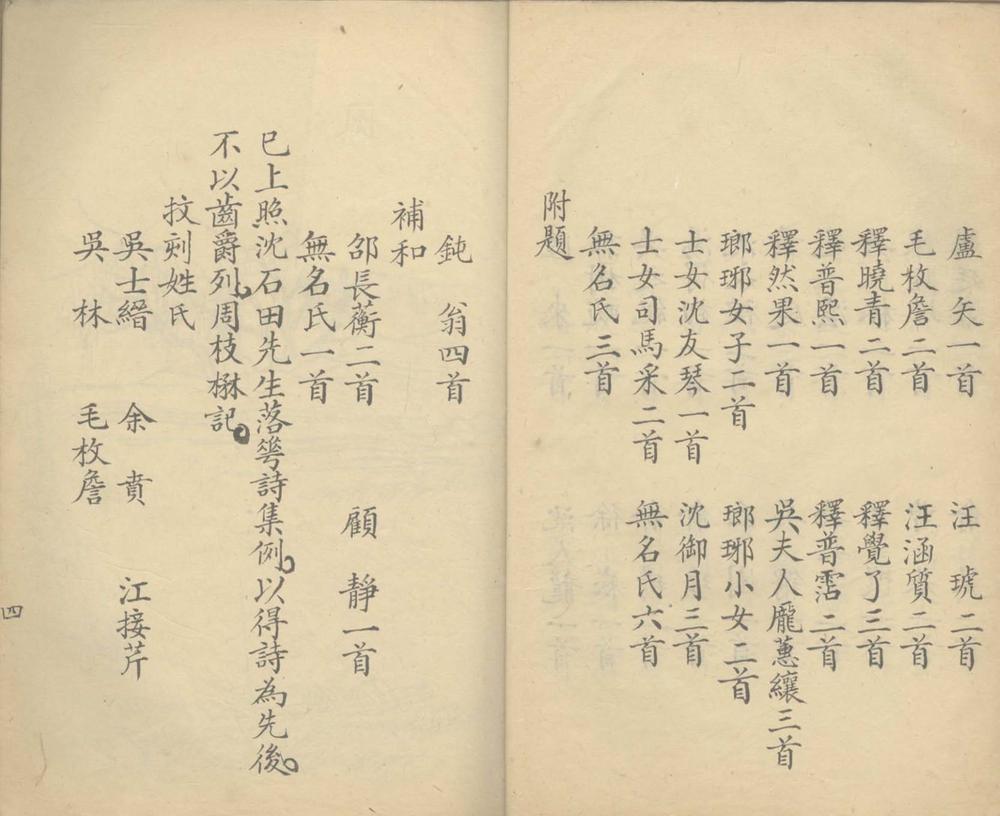 盧矢一首 汪琥二首
毛枚詹二首 汪涵質二首
釋曉青二首 釋覺了三首
釋普熙一首 釋普霑二首
釋然果一首 吳夫人龐蕙纕三首
瑯琊女子二首 瑯琊小女二首
士女沈友琴一首 沈御月三首
士女司馬采二首 無名氏六首
無名氏三首
附題
鈍翁四首
補和
邵長蘅二首 顧靜一首
無名氏一首
已上照沈石田先生落花詩集例。以得詩為先後。
不以齒爵列。周枝楙記。
挍刻姓氏
吳士縉 余賁 江接芹
吳林 毛枚詹
四